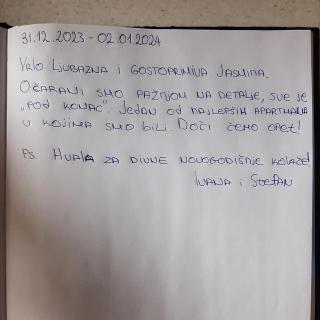 31.12.2023 - 02.01.2024
Vrlo ljubazna i gostoprimiva Jasmina.
Očarani smo pažnjom na detalje, sve je
„pod konac". Jedan od najlepših apartmana
u kojima smo bili. Doći ćemo opet!
Ps. Hvala za divne novogodišnje kolače!
Ivana i Stefan